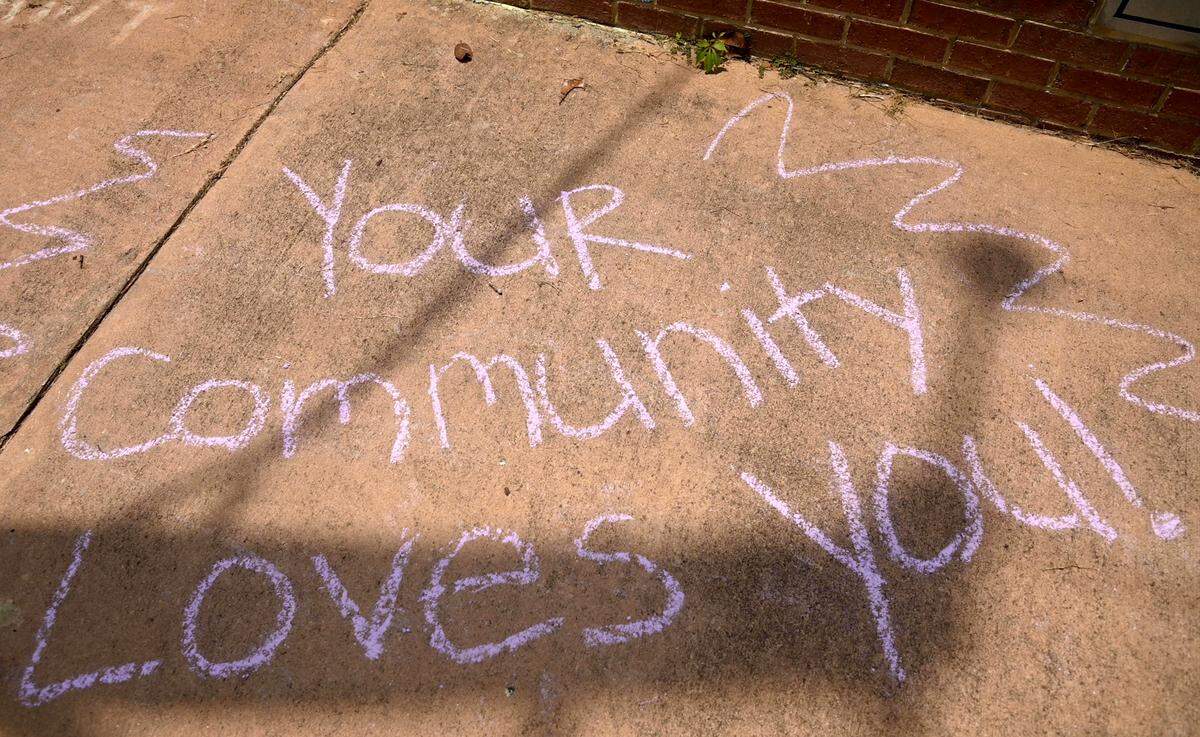 Your
Community
Loves You!